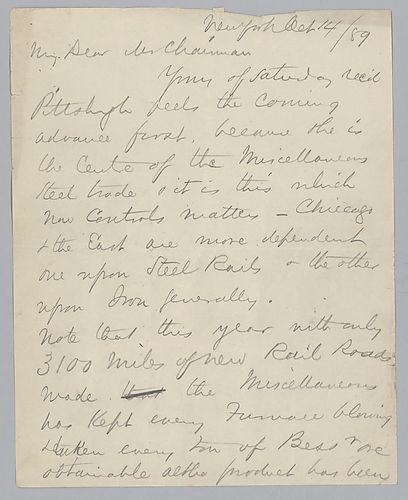 New York Oct 14/89
My Dear Mr Chairman
Yours of Saturday rec'd
Pittsburgh feels the coming
advance first, because she is
the centre of the Miscellaneous
Steel trade & it is this which
now controls matters — Chicago
& the East are more dependent
one upon Steel Rails & the other
upon Iron generally.
Note that this year with only
3100 miles of new Rail Roads
made the Miscellaneous
has kept every Furnace blowing
& taken every ton of Bessr ore
obtainable altho product has been